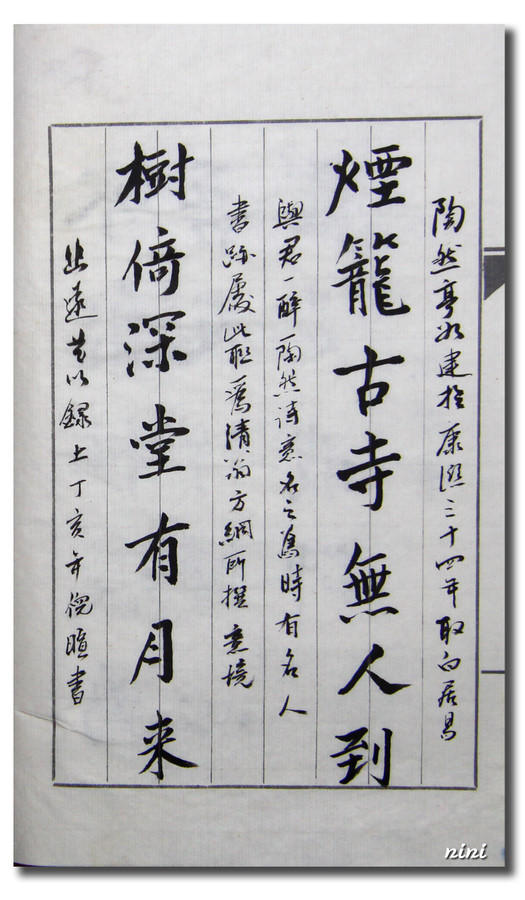 陶然亭初建於康熙三十四年取白居易
煙籠古寺無人到
與君一醉一陶然詩意名之舊時有名人
書跡屬此聯爲清翁方綱所撰意境
樹倚深堂有月来
幽遠甚以錄上丁亥年倪暄書
nini